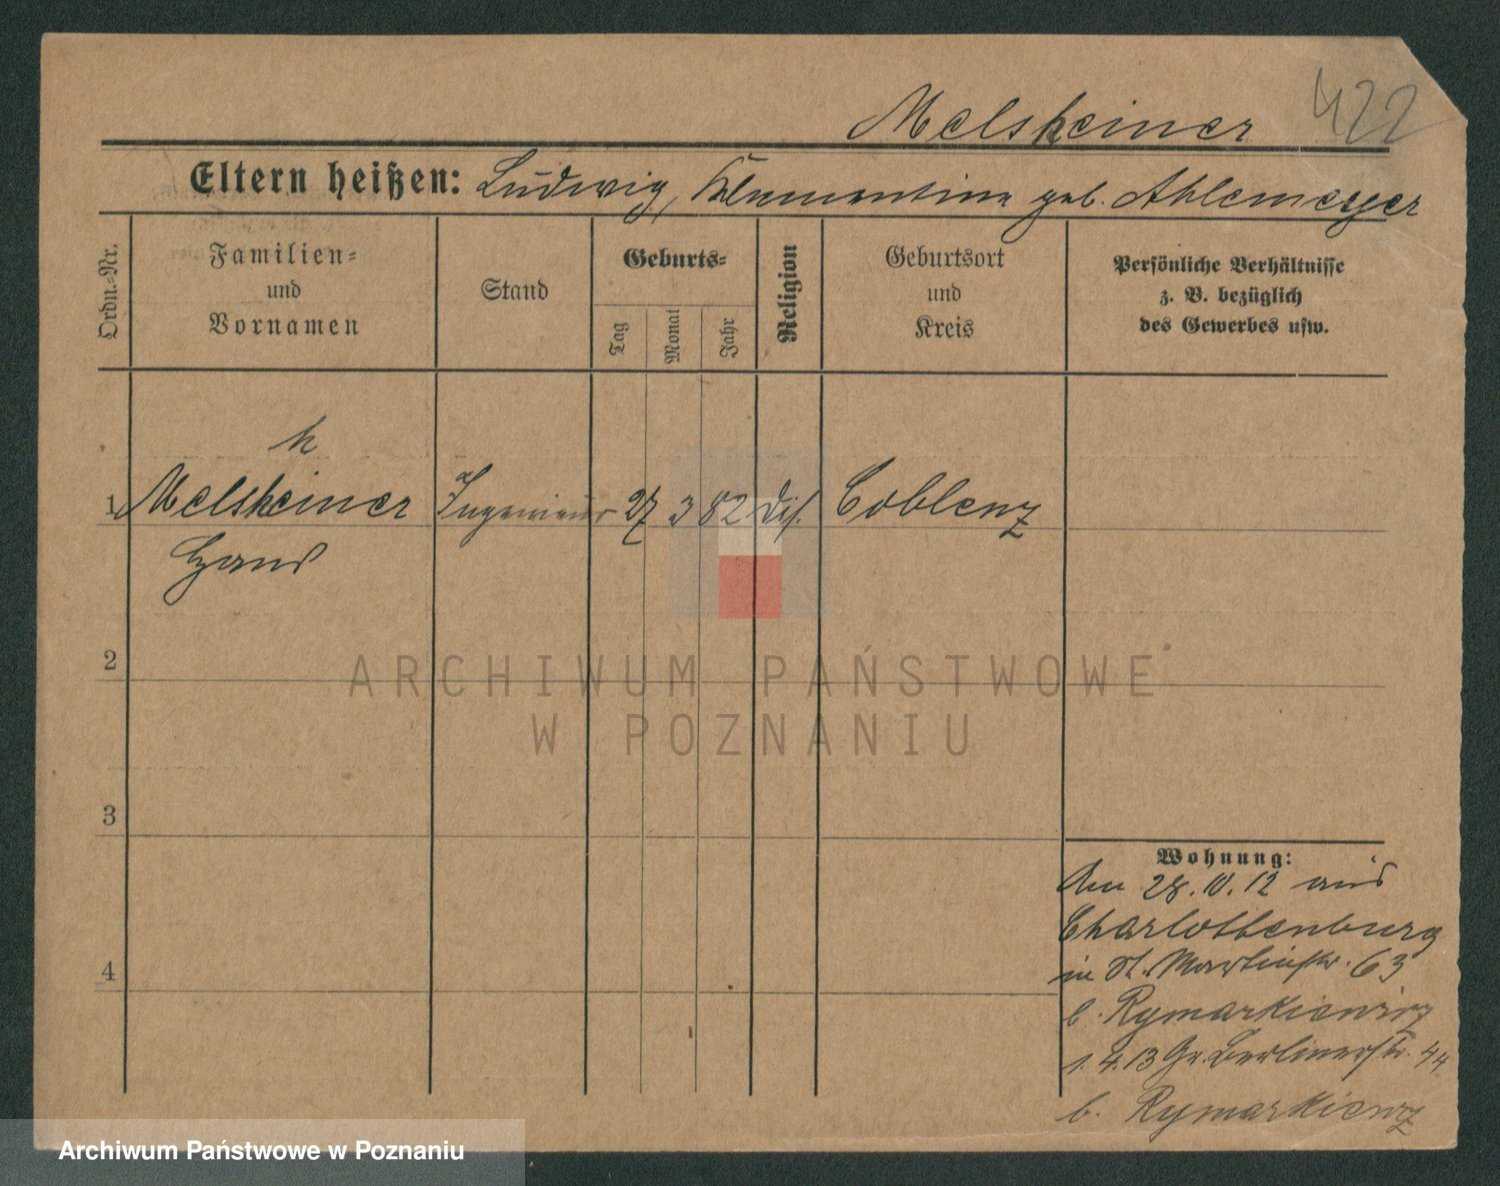 422
Melsheimer
Eltern heißen: Ludwig, Klementine geb. Ahlemeyer
Ordn.-Nr.
Familien-
und
Vornamen
Stand
Geburts-
Tag
Monat
Jahr
Religion
Geburtsort
und
Kreis
Persönliche Verhältnisse
z. B. bezüglich
des Gewerbes usw.
h
1 Melsheimer Ingenieur 27 3 82 diss. Coblenz
Hans
2
3
4
Wohnung:
Am 28.10.12 aus
Charlottenburg
in St. Martinstr. 63
b. Rymarkiewicz
1.4.13 Gr. Berlinerstr. 44
b. Rymarkiewicz
ARCHIWUM PAŃSTWOWE
W POZNANIU
Archiwum Państwowe w Poznaniu